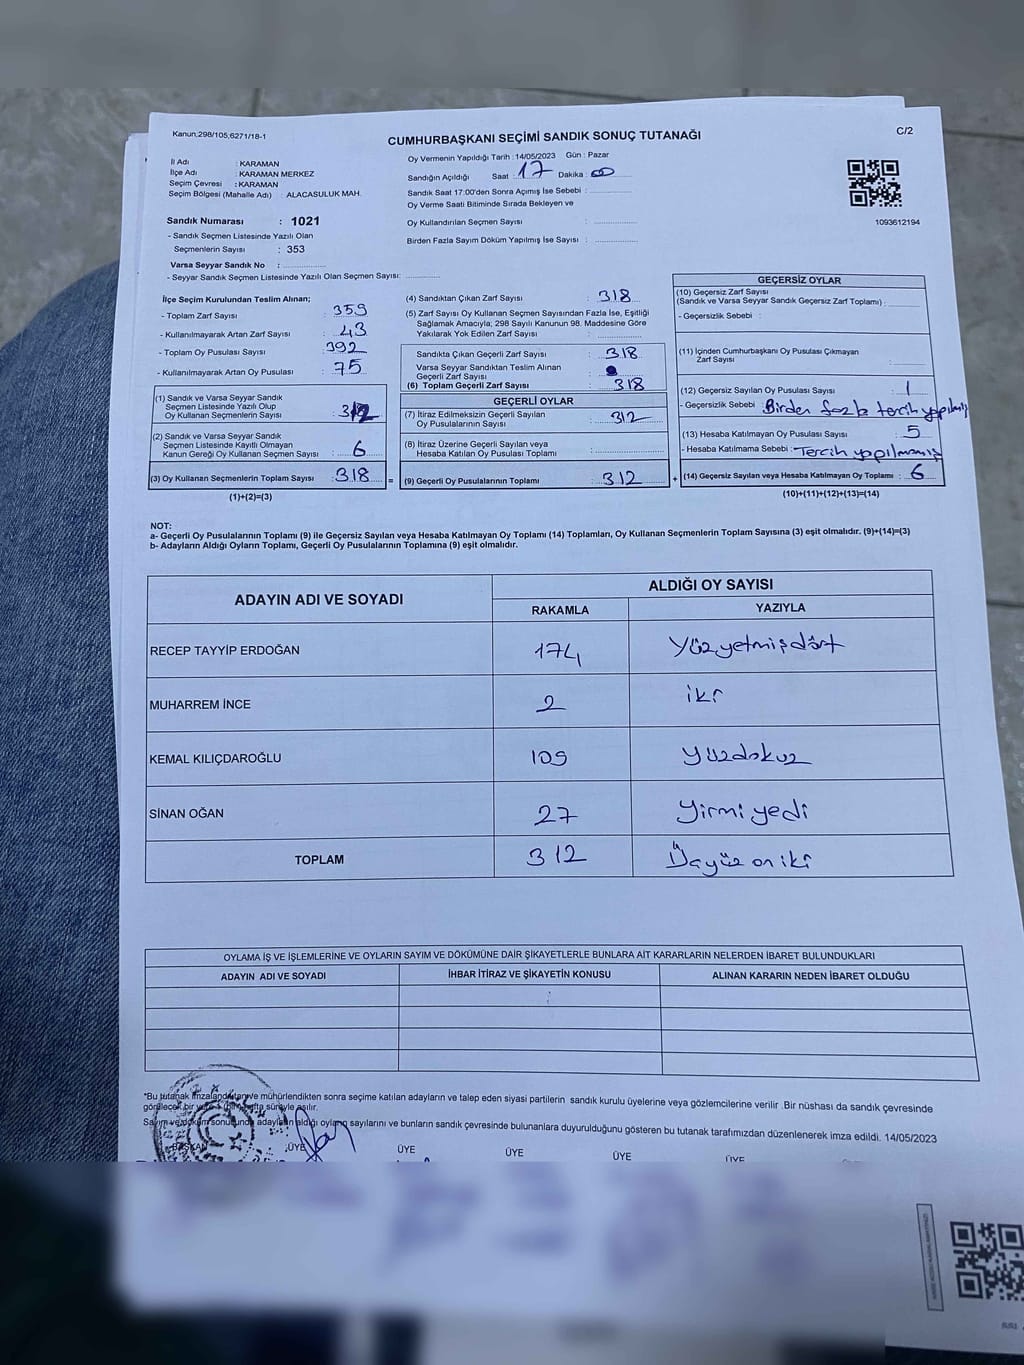 Kanun;298/105,6271/18-1
CUMHURBAŞKANI SEÇİMİ SANDIK SONUÇ TUTANAĞI
C/2
İl Adı : KARAMAN
İlçe Adı : KARAMAN MERKEZ
Seçim Çevresi : KARAMAN
Seçim Bölgesi (Mahalle Adı) : ALACASULUK MAH.
Oy Vermenin Yapıldığı Tarih : 14/05/2023 Gün : Pazar
Sandığın Açıldığı Saat : 17 Dakika : 00
Sandık Saat 17:00'den Sonra Açımış İse Sebebi :
Oy Verme Saati Bitiminde Sırada Bekleyen ve
Oy Kullandırılan Seçmen Sayısı :
Birden Fazla Sayım Döküm Yapılmış İse Sayısı :
1093612194
Sandık Numarası : 1021
- Sandık Seçmen Listesinde Yazılı Olan
Seçmenlerin Sayısı : 353
Varsa Seyyar Sandık No :
- Seyyar Sandık Seçmen Listesinde Yazılı Olan Seçmen Sayısı:
İlçe Seçim Kurulundan Teslim Alınan;
- Toplam Zarf Sayısı : 359
- Kullanılmayarak Artan Zarf Sayısı : 43
- Toplam Oy Pusulası Sayısı : 392
- Kullanılmayarak Artan Oy Pusulası : 75
(1) Sandık ve Varsa Seyyar Sandık
Seçmen Listesinde Yazılı Olup
Oy Kullanan Seçmenlerin Sayısı : 312
(2) Sandık ve Varsa Seyyar Sandık
Seçmen Listesinde Kayıtlı Olmayan
Kanun Gereği Oy Kullanan Seçmen Sayısı : 6
(3) Oy Kullanan Seçmenlerin Toplam Sayısı : 318 =
(1)+(2)=(3)
(4) Sandıktan Çıkan Zarf Sayısı : 318
(5) Zarf Sayısı Oy Kullanan Seçmen Sayısından Fazla İse, Eşitliği
Sağlamak Amacıyla; 298 Sayılı Kanunun 98. Maddesine Göre
Yakılarak Yok Edilen Zarf Sayısı :
Sandıkta Çıkan Geçerli Zarf Sayısı : 318
Varsa Seyyar Sandıktan Teslim Alınan
Geçerli Zarf Sayısı :
(6) Toplam Geçerli Zarf Sayısı : 318
GEÇERLİ OYLAR
(7) İtiraz Edilmeksizin Geçerli Sayılan
Oy Pusulalarının Sayısı : 312
(8) İtiraz Üzerine Geçerli Sayılan veya
Hesaba Katılan Oy Pusulası Toplamı :
(9) Geçerli Oy Pusulalarının Toplamı : 312 +
GEÇERSİZ OYLAR
(10) Geçersiz Zarf Sayısı
(Sandık ve Varsa Seyyar Sandık Geçersiz Zarf Toplamı) :
- Geçersizlik Sebebi :
(11) İçinden Cumhurbaşkanı Oy Pusulası Çıkmayan
Zarf Sayısı :
(12) Geçersiz Sayılan Oy Pusulası Sayısı : 1
- Geçersizlik Sebebi : Birden fazla tercih yapılmış
(13) Hesaba Katılmayan Oy Pusulası Sayısı : 5
- Hesaba Katılmama Sebebi : Tercih yapılmamış
(14) Geçersiz Sayılan veya Hesaba Katılmayan Oy Toplamı : 6
(10)+(11)+(12)+(13)=(14)
NOT:
a- Geçerli Oy Pusulalarının Toplamı (9) ile Geçersiz Sayılan veya Hesaba Katılmayan Oy Toplamı (14) Toplamları, Oy Kullanan Seçmenlerin Toplam Sayısına (3) eşit olmalıdır. (9)+(14)=(3)
b- Adayların Aldığı Oyların Toplamı, Geçerli Oy Pusulalarının Toplamına (9) eşit olmalıdır.
ADAYIN ADI VE SOYADI
ALDIĞI OY SAYISI
RAKAMLA YAZIYLA
RECEP TAYYİP ERDOĞAN 174 Yüzyetmişdört
MUHARREM İNCE 2 iki
KEMAL KILIÇDAROĞLU 109 yüzdokuz
SİNAN OĞAN 27 yirmiyedi
TOPLAM 312 Üçyüz on iki
OYLAMA İŞ VE İŞLEMLERİNE VE OYLARIN SAYIM VE DÖKÜMÜNE DAİR ŞİKAYETLERLE BUNLARA AİT KARARLARIN NELERDEN İBARET BULUNDUKLARI
ADAYIN ADI VE SOYADI İHBAR İTİRAZ VE ŞİKAYETİN KONUSU ALINAN KARARIN NEDEN İBARET OLDUĞU
*Bu tutanak imzalandıktan ve mühürlendikten sonra seçime katılan adayların ve talep eden siyasi partilerin sandık kurulu üyelerine veya gözlemcilerine verilir .Bir nüshası da sandık çevresinde
görülecek bir yere 1 (bir) hafta süreyle asılır.
Sayım ve döküm sonucunda adayların aldığı oyların sayılarını ve bunların sandık çevresinde bulunanlara duyurulduğunu gösteren bu tutanak tarafımızdan düzenlenerek imza edildi. 14/05/2023
BAŞKAN ÜYE ÜYE ÜYE ÜYE ÜYE